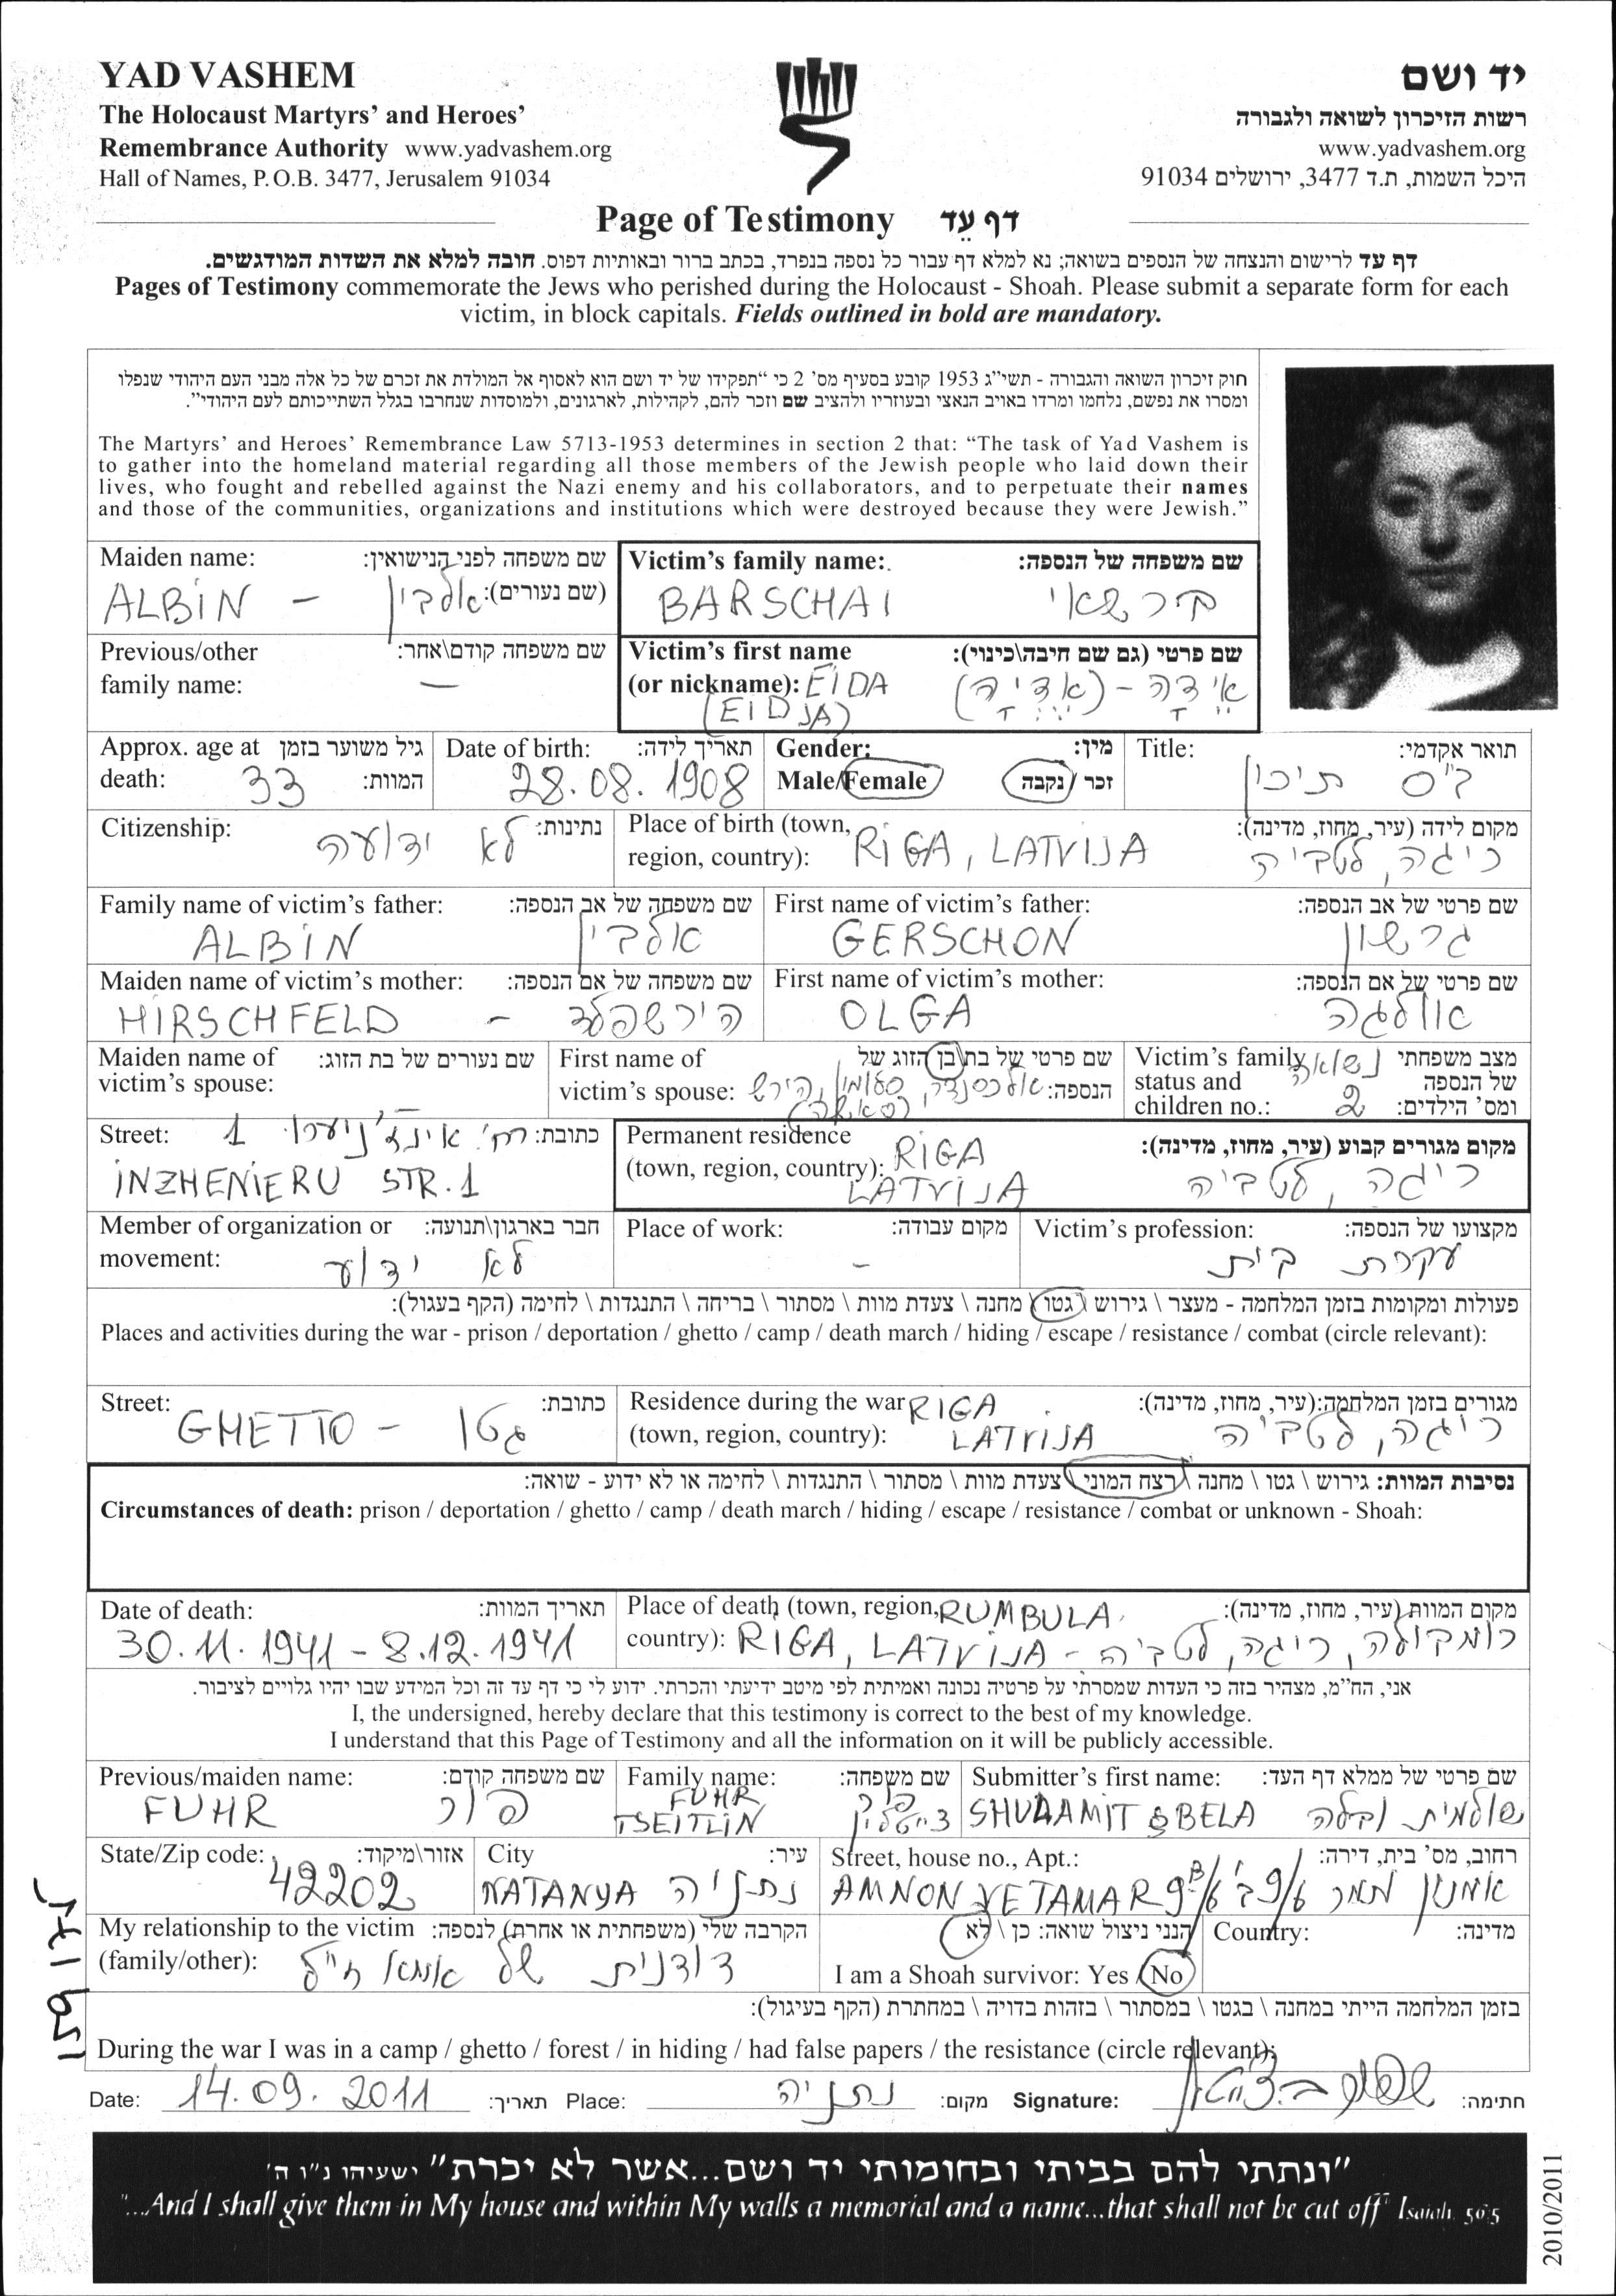 YAD VASHEM
The Holocaust Martyrs' and Heroes'
Remembrance Authority www.yadvashem.org
Hall of Names, P.O.B. 3477, Jerusalem 91034
יד ושם
רשות הזיכרון לשואה ולגבורה
www.yadvashem.org
היכל השמות, ת.ד 3477, ירושלים 91034
Page of Testimony דף עֵד
דף עד לרישום והנצחה של הנספים בשואה; נא למלא דף עבור כל נספה בנפרד, בכתב ברור ובאותיות דפוס. חובה למלא את השדות המודגשים.
Pages of Testimony commemorate the Jews who perished during the Holocaust - Shoah. Please submit a separate form for each
victim, in block capitals. Fields outlined in bold are mandatory.
חוק זיכרון השואה והגבורה - תשי"ג 1953 קובע בסעיף מס' 2 כי "תפקידו של יד ושם הוא לאסוף אל המולדת את זכרם של כל אלה מבני העם היהודי שנפלו
ומסרו את נפשם, נלחמו ומרדו באויב הנאצי ובעוזריו ולהציב שם וזכר להם, לקהילות, לארגונים, ולמוסדות שנחרבו בגלל השתייכותם לעם היהודי".
The Martyrs' and Heroes' Remembrance Law 5713-1953 determines in section 2 that: "The task of Yad Vashem is
to gather into the homeland material regarding all those members of the Jewish people who laid down their
lives, who fought and rebelled against the Nazi enemy and his collaborators, and to perpetuate their names
and those of the communities, organizations and institutions which were destroyed because they were Jewish."
Maiden name: שם משפחה לפני הנישואין:
(שם נעורים):
ALBIN - אלבין
Victim's family name: שם משפחה של הנספה:
BARSCHAI ברשאי
Previous/other שם משפחה קודם\אחר:
family name: -
Victim's first name שם פרטי (גם שם חיבה\כינוי):
(or nickname): EIDA אֵיְדָה - (אֵדְיָה)
(EIDJA)
Approx. age at גיל משוער בזמן
death: 33 המוות:
Date of birth: תאריך לידה:
28.08.1908
Gender: מין:
Male/Female זכר / נקבה
Title: תואר אקדמי:
בי"ס תיכון
Citizenship: נתינות:
לא ידועה
Place of birth (town, מקום לידה (עיר, מחוז, מדינה):
region, country): RIGA, LATVIJA ריגה, לטביה
Family name of victim's father: שם משפחה של אב הנספה:
ALBIN אלבין
First name of victim's father: שם פרטי של אב הנספה:
GERSCHON גרשון
Maiden name of victim's mother: שם משפחה של אם הנספה:
HIRSCHFELD - הירשפלד
First name of victim's mother: שם פרטי של אם הנספה:
OLGA אולגה
Maiden name of שם נעורים של בת הזוג:
victim's spouse: -
First name of שם פרטי של בת\בן הזוג של
victim's spouse: הנספה: אלכסנדר, הירש
Victim's family מצב משפחתי נשואה
status and של הנספה
children no.: 2 ומס' הילדים:
Street: כתובת: רח' אינז'ניערו 1
INZHENIERU STR. 1
Permanent residence מקום מגורים קבוע (עיר, מחוז, מדינה):
(town, region, country): RIGA
LATVIJA ריגה, לטביה
Member of organization or חבר בארגון\תנועה:
movement: לא ידוע
Place of work: מקום עבודה:
-
Victim's profession: מקצועו של הנספה:
עקרת בית
פעולות ומקומות בזמן המלחמה - מעצר \ גירוש \ גטו \ מחנה \ צעדת מוות \ מסתור \ בריחה \ התנגדות \ לחימה (הקף בעגול):
Places and activities during the war - prison / deportation / ghetto / camp / death march / hiding / escape / resistance / combat (circle relevant):
Street: כתובת:
GHETTO - גטו
Residence during the war מגורים בזמן המלחמה:(עיר, מחוז, מדינה):
(town, region, country): RIGA
LATVIJA ריגה, לטביה
נסיבות המוות: גירוש \ גטו \ מחנה \ רצח המוני \ צעדת מוות \ מסתור \ התנגדות \ לחימה או לא ידוע - שואה:
Circumstances of death: prison / deportation / ghetto / camp / death march / hiding / escape / resistance / combat or unknown - Shoah:
Date of death: תאריך המוות:
30.11.1941 - 8.12.1941
Place of death (town, region, RUMBULA, מקום המוות (עיר, מחוז, מדינה):
country): RIGA, LATVIJA - רומבולה, ריגה, לטביה
אני, הח"מ, מצהיר בזה כי העדות שמסרתי על פרטיה נכונה ואמיתית לפי מיטב ידיעתי והכרתי. ידוע לי כי דף עד זה וכל המידע שבו יהיו גלויים לציבור.
I, the undersigned, hereby declare that this testimony is correct to the best of my knowledge.
I understand that this Page of Testimony and all the information on it will be publicly accessible.
Previous/maiden name: שם משפחה קודם:
FUHR פור
Family name: שם משפחה:
FUHR פור
TSEITLIN צייטלין
Submitter's first name: שם פרטי של ממלא דף העד:
SHULAMIT & BELA שולמית ובלה
State/Zip code: אזור\מיקוד:
42202
City עיר:
NATANYA נתניה
Street, house no., Apt.: רחוב, מס' בית, דירה:
AMNON VETAMAR אמנון ותמר
My relationship to the victim הקרבה שלי (משפחתית או אחרת) לנספה:
(family/other): דודנית של אמא ז"ל
הנני ניצול שואה: כן \ לא
I am a Shoah survivor: Yes / No
Country: מדינה:
בזמן המלחמה הייתי במחנה \ בגטו \ במסתור \ בזהות בדויה \ במחתרת (הקף בעיגול):
During the war I was in a camp / ghetto / forest / in hiding / had false papers / the resistance (circle relevant):
Date: 14.09.2011 תאריך: Place: נתניה מקום: Signature: חתימה:
"ונתתי להם בביתי ובחומותי יד ושם...אשר לא יכרת" ישעיהו נ"ו ה'
"...And I shall give them in My house and within My walls a memorial and a name...that shall not be cut off" Isaiah 56:5
2010/2011